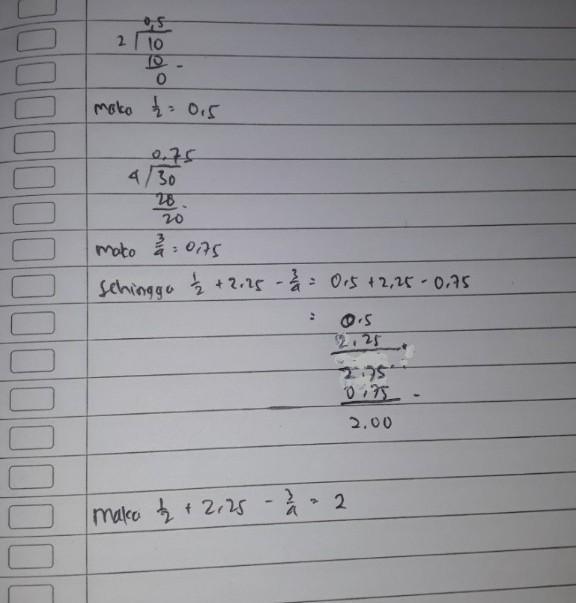 0,5
2 / 10
10 -
0
maka 1/2 = 0,5
0,75
4 / 30
28 -
20
maka 3/4 = 0,75
sehingga 1/2 + 2,25 - 3/4 = 0,5 + 2,25 - 0,75
= 0,5
2,25 +
2,75
0,75 -
2,00
maka 1/2 + 2,25 - 3/4 = 2